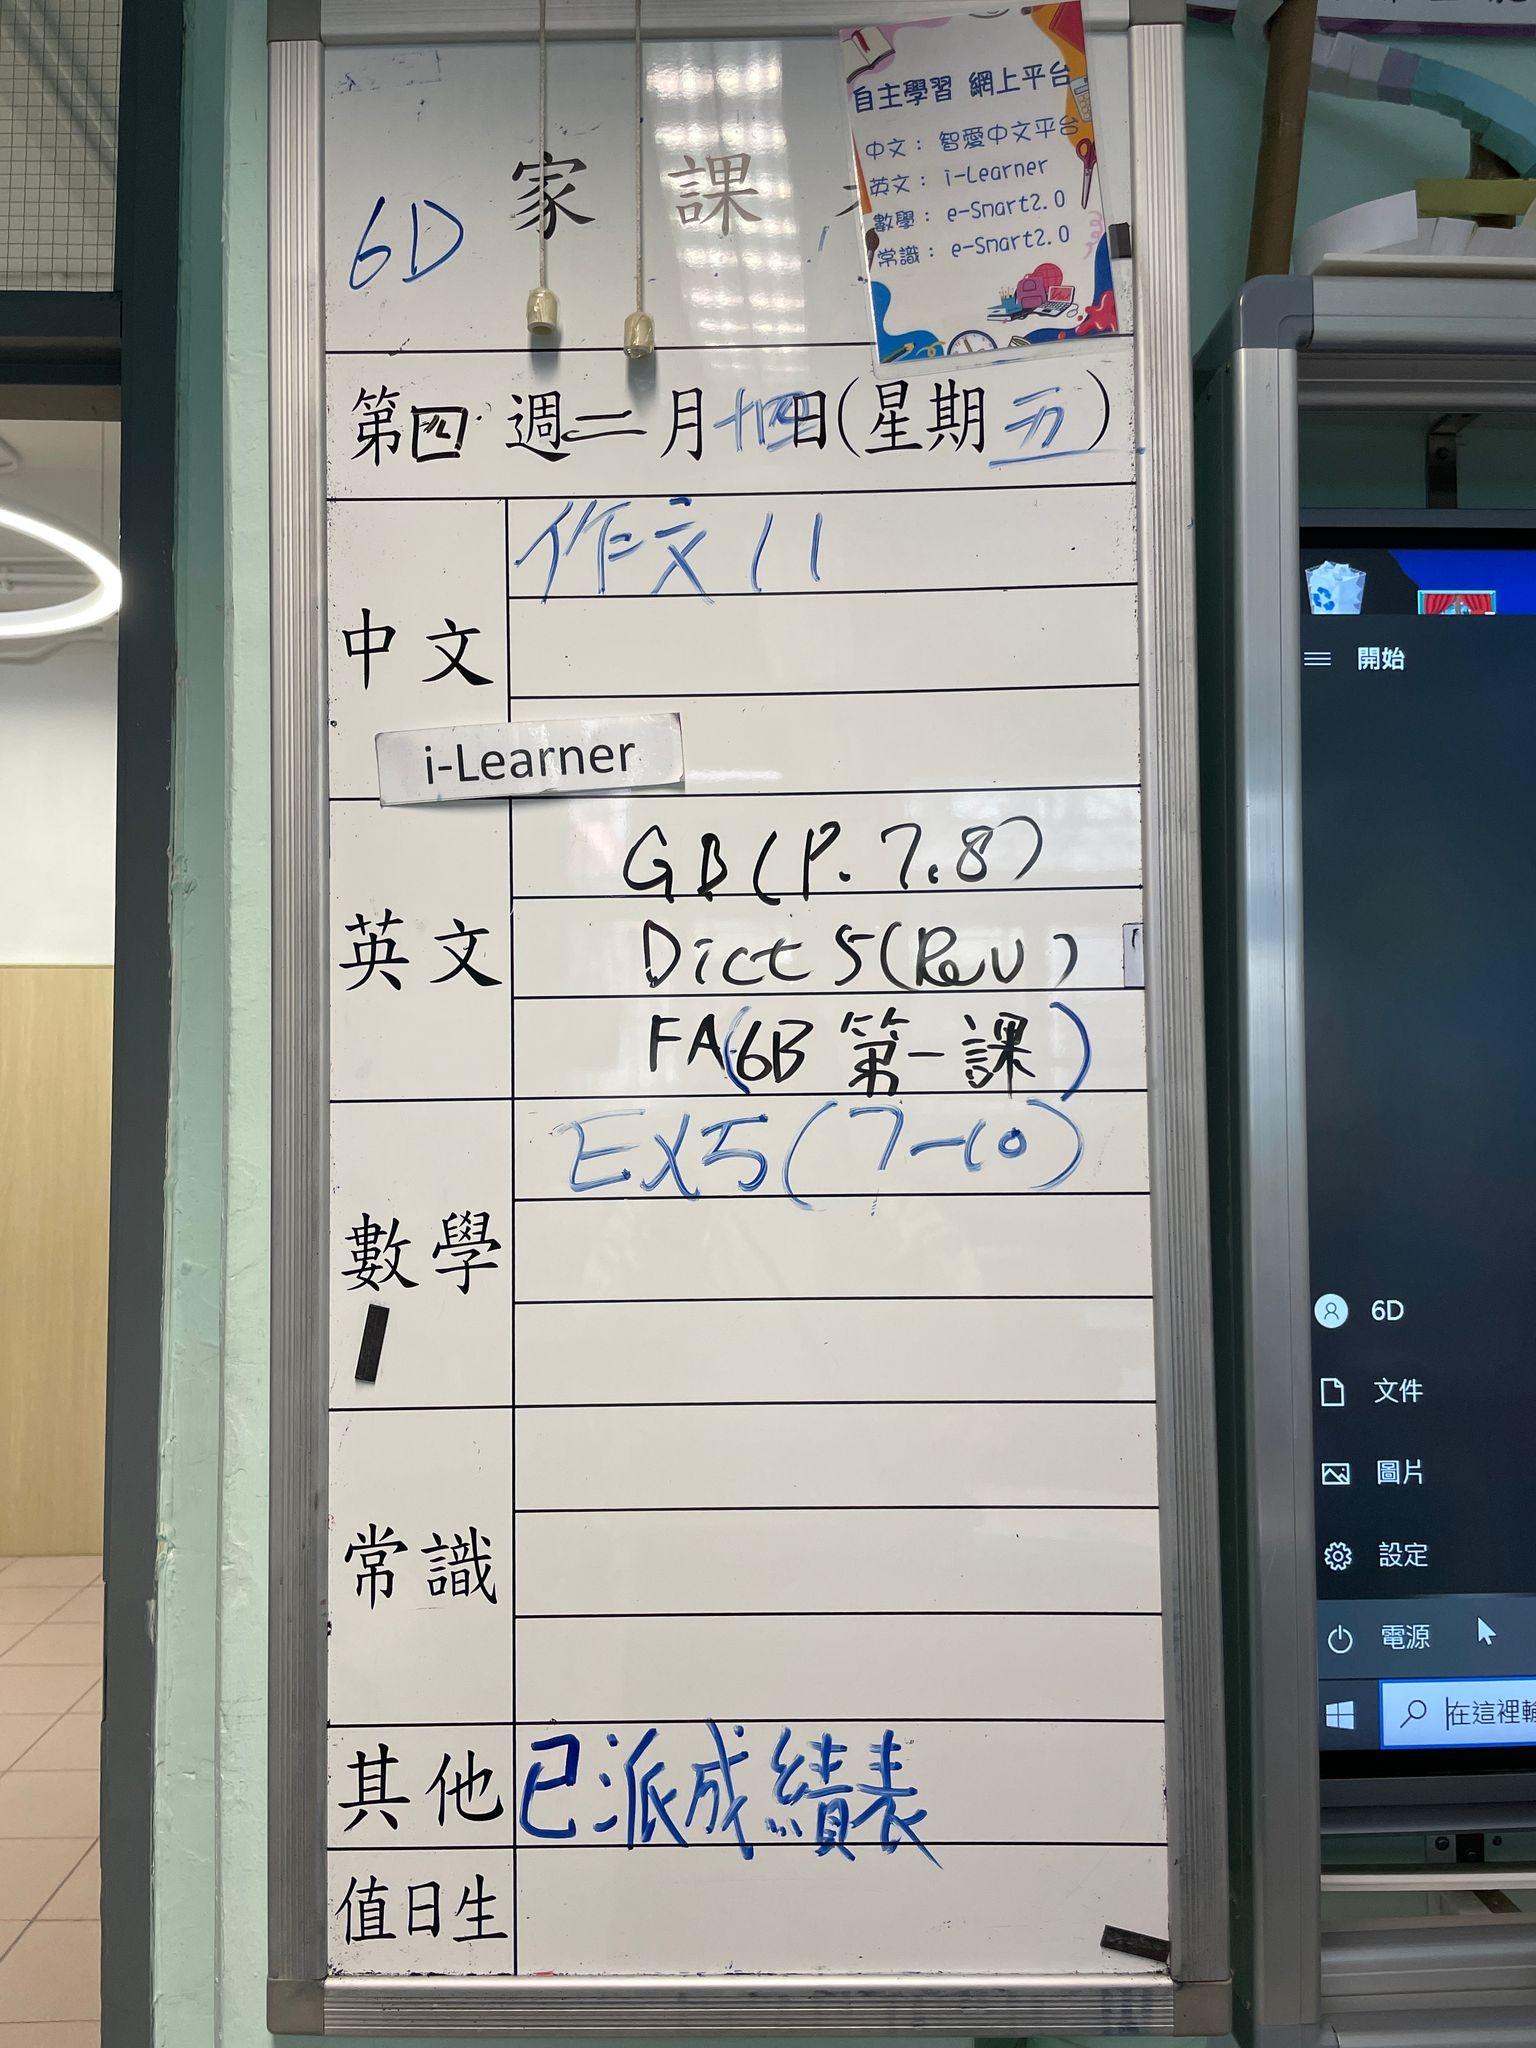 家課
6D
自主學習 網上平台
中文：智愛中文平台
英文：i-Learner
數學：e-Smart2.0
常識：e-Smart2.0
第四週二月十四日(星期五)
中文
作文11
i-Learner
英文
GB(P.7.8)
Dict 5(Rev)
FA(6B 第一課)
數學
EX5(7-10)
常識
其他
已派成績表
值日生
開始
6D
文件
圖片
設定
電源
在這裡輸